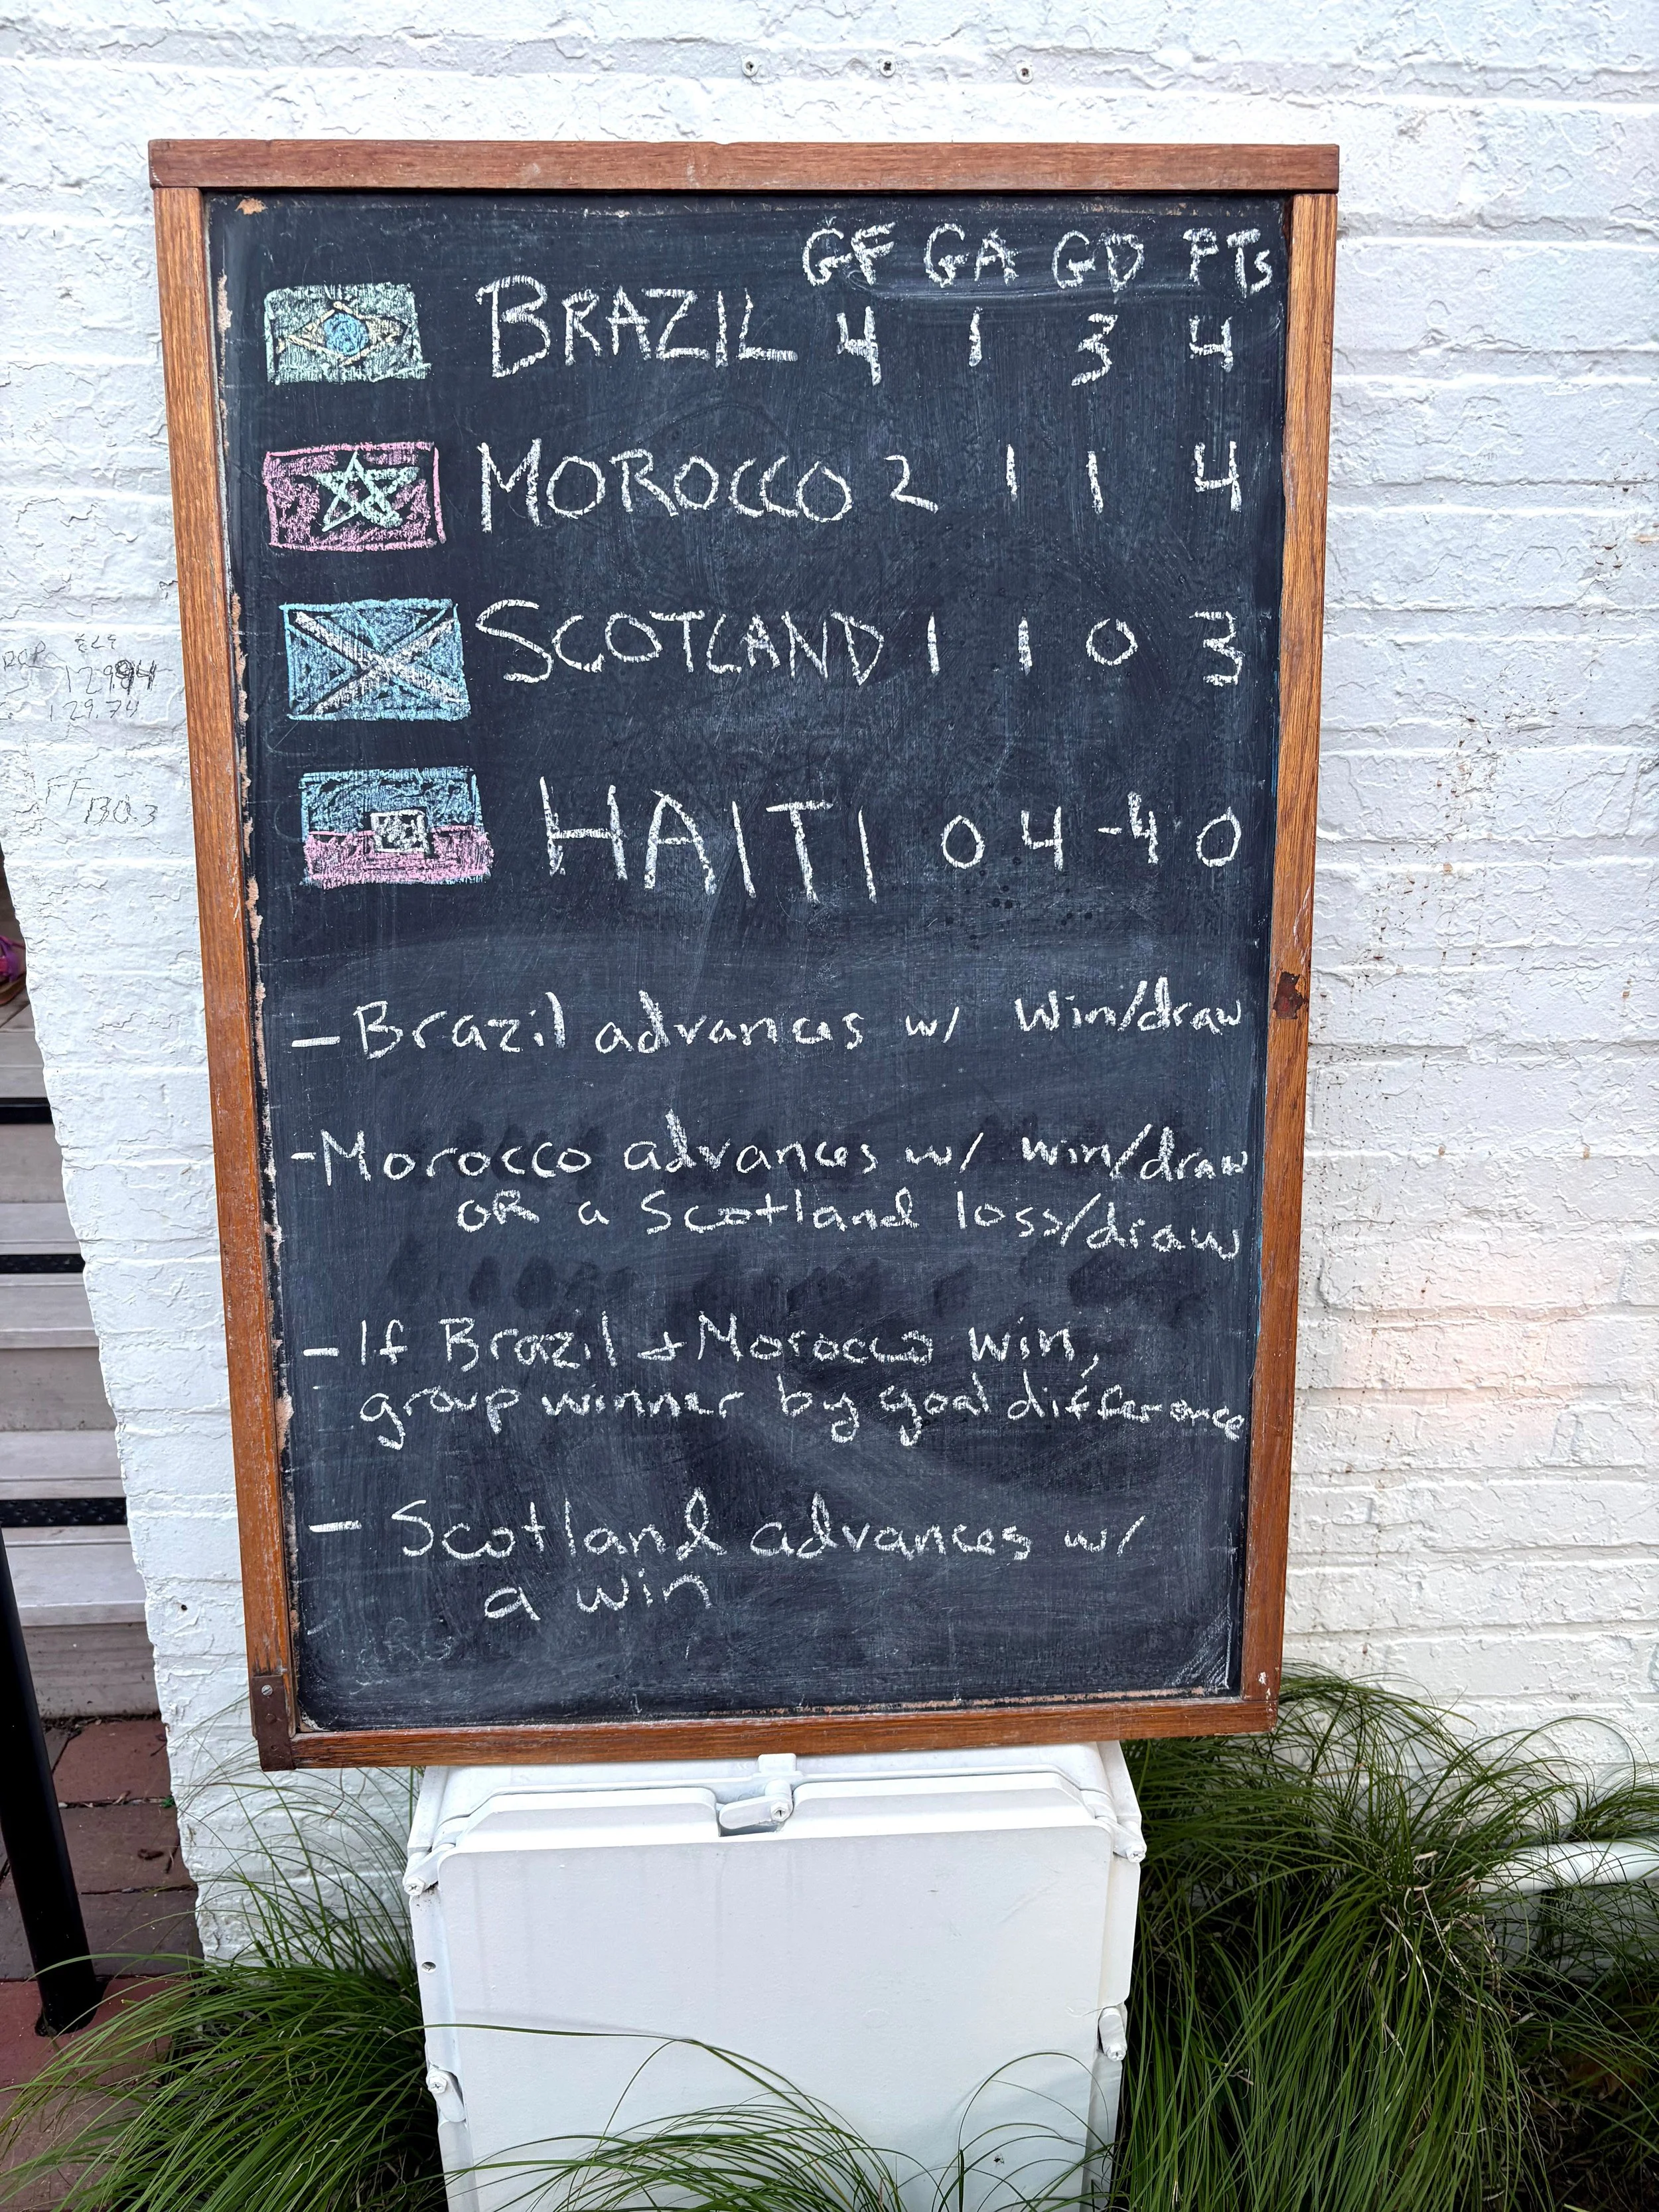 GF GA GD PTs
BRAZIL 4 1 3 4
MOROCCO 2 1 1 4
SCOTLAND 1 1 0 3
HAITI 0 4 -4 0
- Brazil advances w/ win/draw
- Morocco advances w/ win/draw
OR a Scotland loss/draw
- If Brazil + Morocco win,
group winner by goal difference
- Scotland advances w/
a win
129.94
129.74